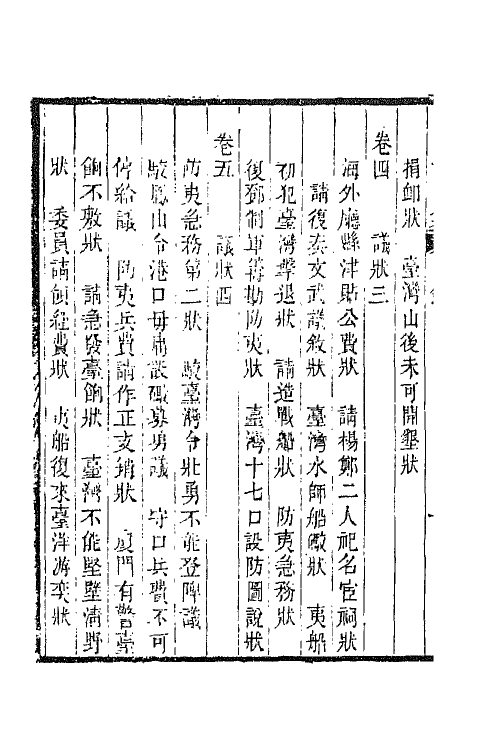 捐卹狀　臺灣山後未可開墾狀
卷四　　議狀三
海外廳縣津貼公費狀　請楊鄭二人祀名宦祠狀
請復泰文武議敘狀　臺灣水師船礮狀　夷船
初犯臺灣擊退狀　請造戰船狀　防夷急務狀
復鄧制軍籌勘防夷狀　臺灣十七口設防圖說狀
卷五　　議狀四
防夷急務第二狀　駮臺灣令壯勇不能登陴議
駮鳳山令港口毋庸設礮募勇議　守口兵費不可
停給議　防夷兵費請作正支銷狀　廈門有警臺
餉不敷狀　請急發臺餉狀　臺灣不能堅壁清野
狀　委員請領經費狀　夷船復來臺洋游奕狀